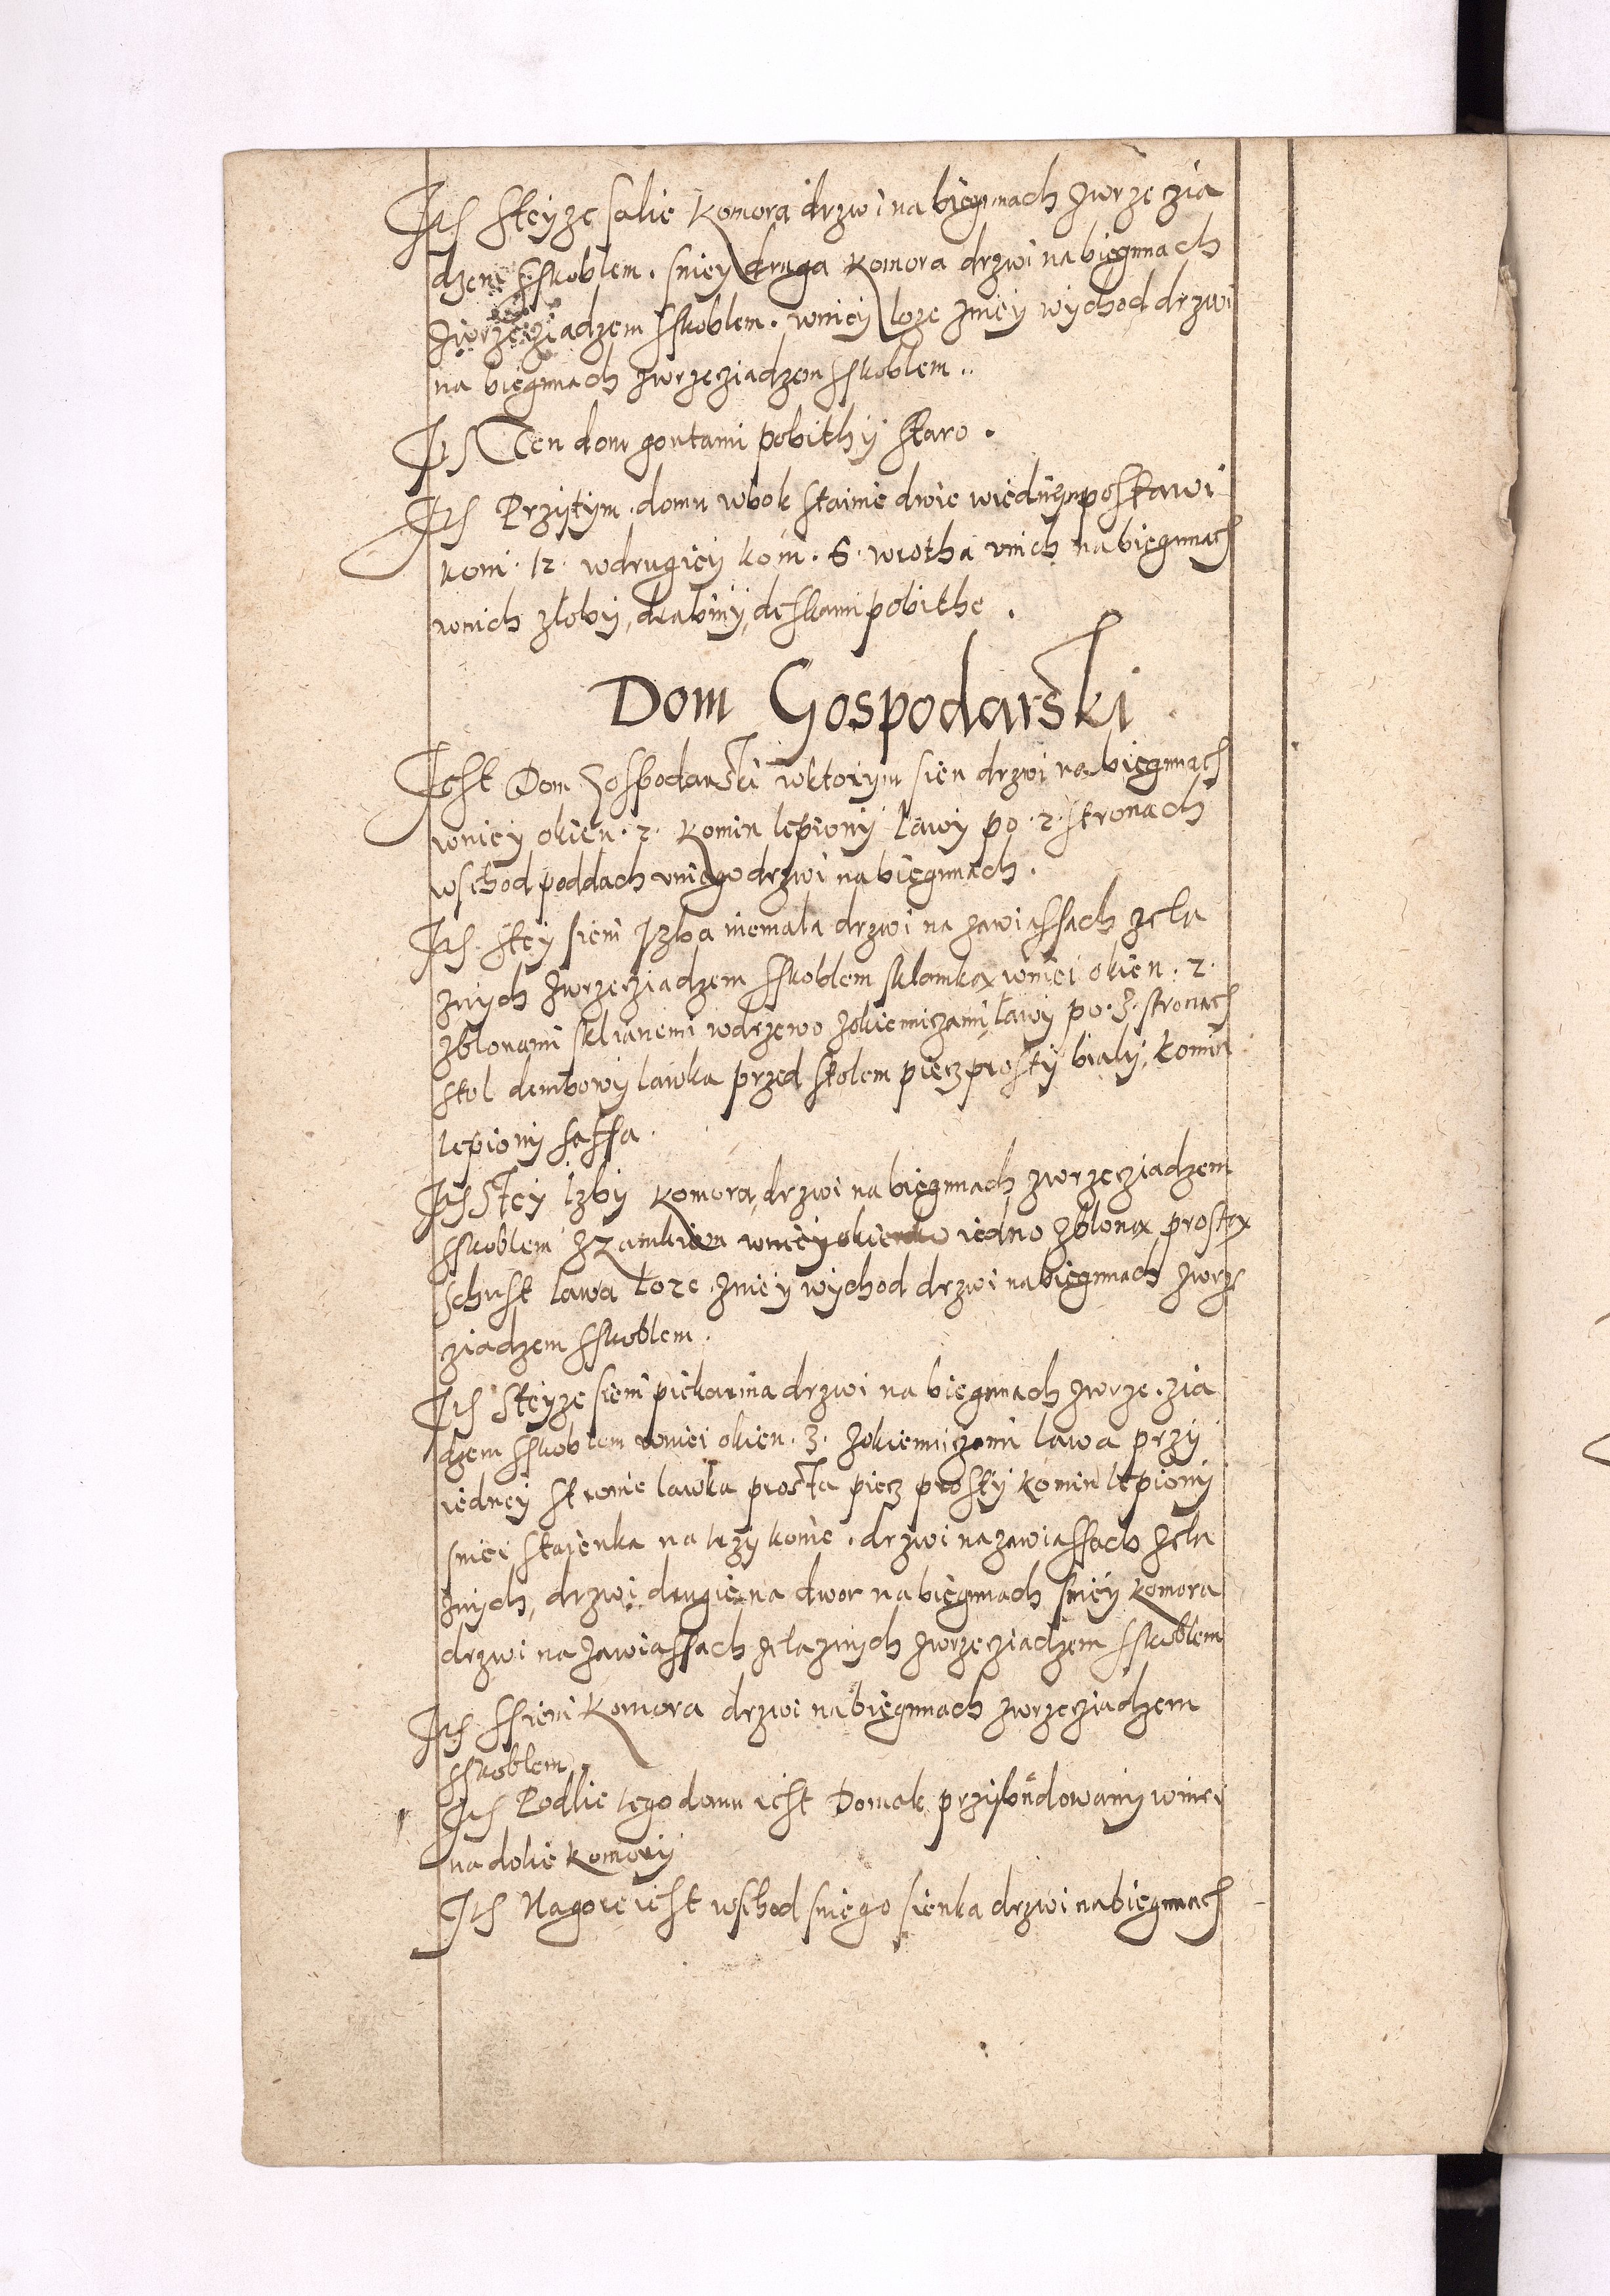 Its Steyze salie komora drzwi na biegunach zwrzeczia
dzem sskoblem. sniey druga komora drzwi na biegunach
zwrzecziadzem sskoblem. wniey loze zniey wychod drzwi
na biegunach zwrzecziadzem sskoblem..
Its Ten dom gontami pobithy staro.
Its Przytym domu wbok stainie dwie wiedny postawi
koni. 12. wdrugiey koni. 6. wrotha unich na biegunach
wnich zloby, drabiny, deskami pobithe.
Dom Gospodarski
Jest Dom Gospodarski wktorym sien drzwi na biegunach
wniey okien. 2. komin lepiony lawy po. 2. stronach
wschod poddach uniego drzwi na biegunach.
Its. stey sieni Izba niemala drzwi na zawiassach zela
znych zwrzecziadzem sskoblem sklamką wniei okien. 2.
zblonami sklanemi wdrzewo zokieniczami lawy po. 3. stronach
stol dembowy lawka przed stolem piecz prosty bialy, komin
lepiony saffa.
Its Stey izby komora, drzwi na biegunach zwrzecziadzem
sskoblem zzamkiem wniey okienko iedno zbloną prostą
schust lawa loze. zniey wychod drzwi na biegunach zwrze
cziadzem sskoblem.
Its Steyze sieni piekarnia drzwi na biegunach zwrze.czia
dzem sskoblem wniei okien. 3. zokieniczami lawa przy
iedney stronie lawka prosta piecz prosty komin lepiony
sniei staienka na trzy konie. drzwi na zawiassach zela
znych, drzwi drugie na dwor na biegunach sniey komora
drzwi na zawiassach zelaznych zwrzecziadzem sskoblem
Its ssieni Komora drzwi na biegunach zwrzecziadzem
sskoblem.
Its Podlie tego domu iest Domek przybudowany wniei
na dolie komory
Its Nagorze iest wschod sniego sienka drzwi na biegunach